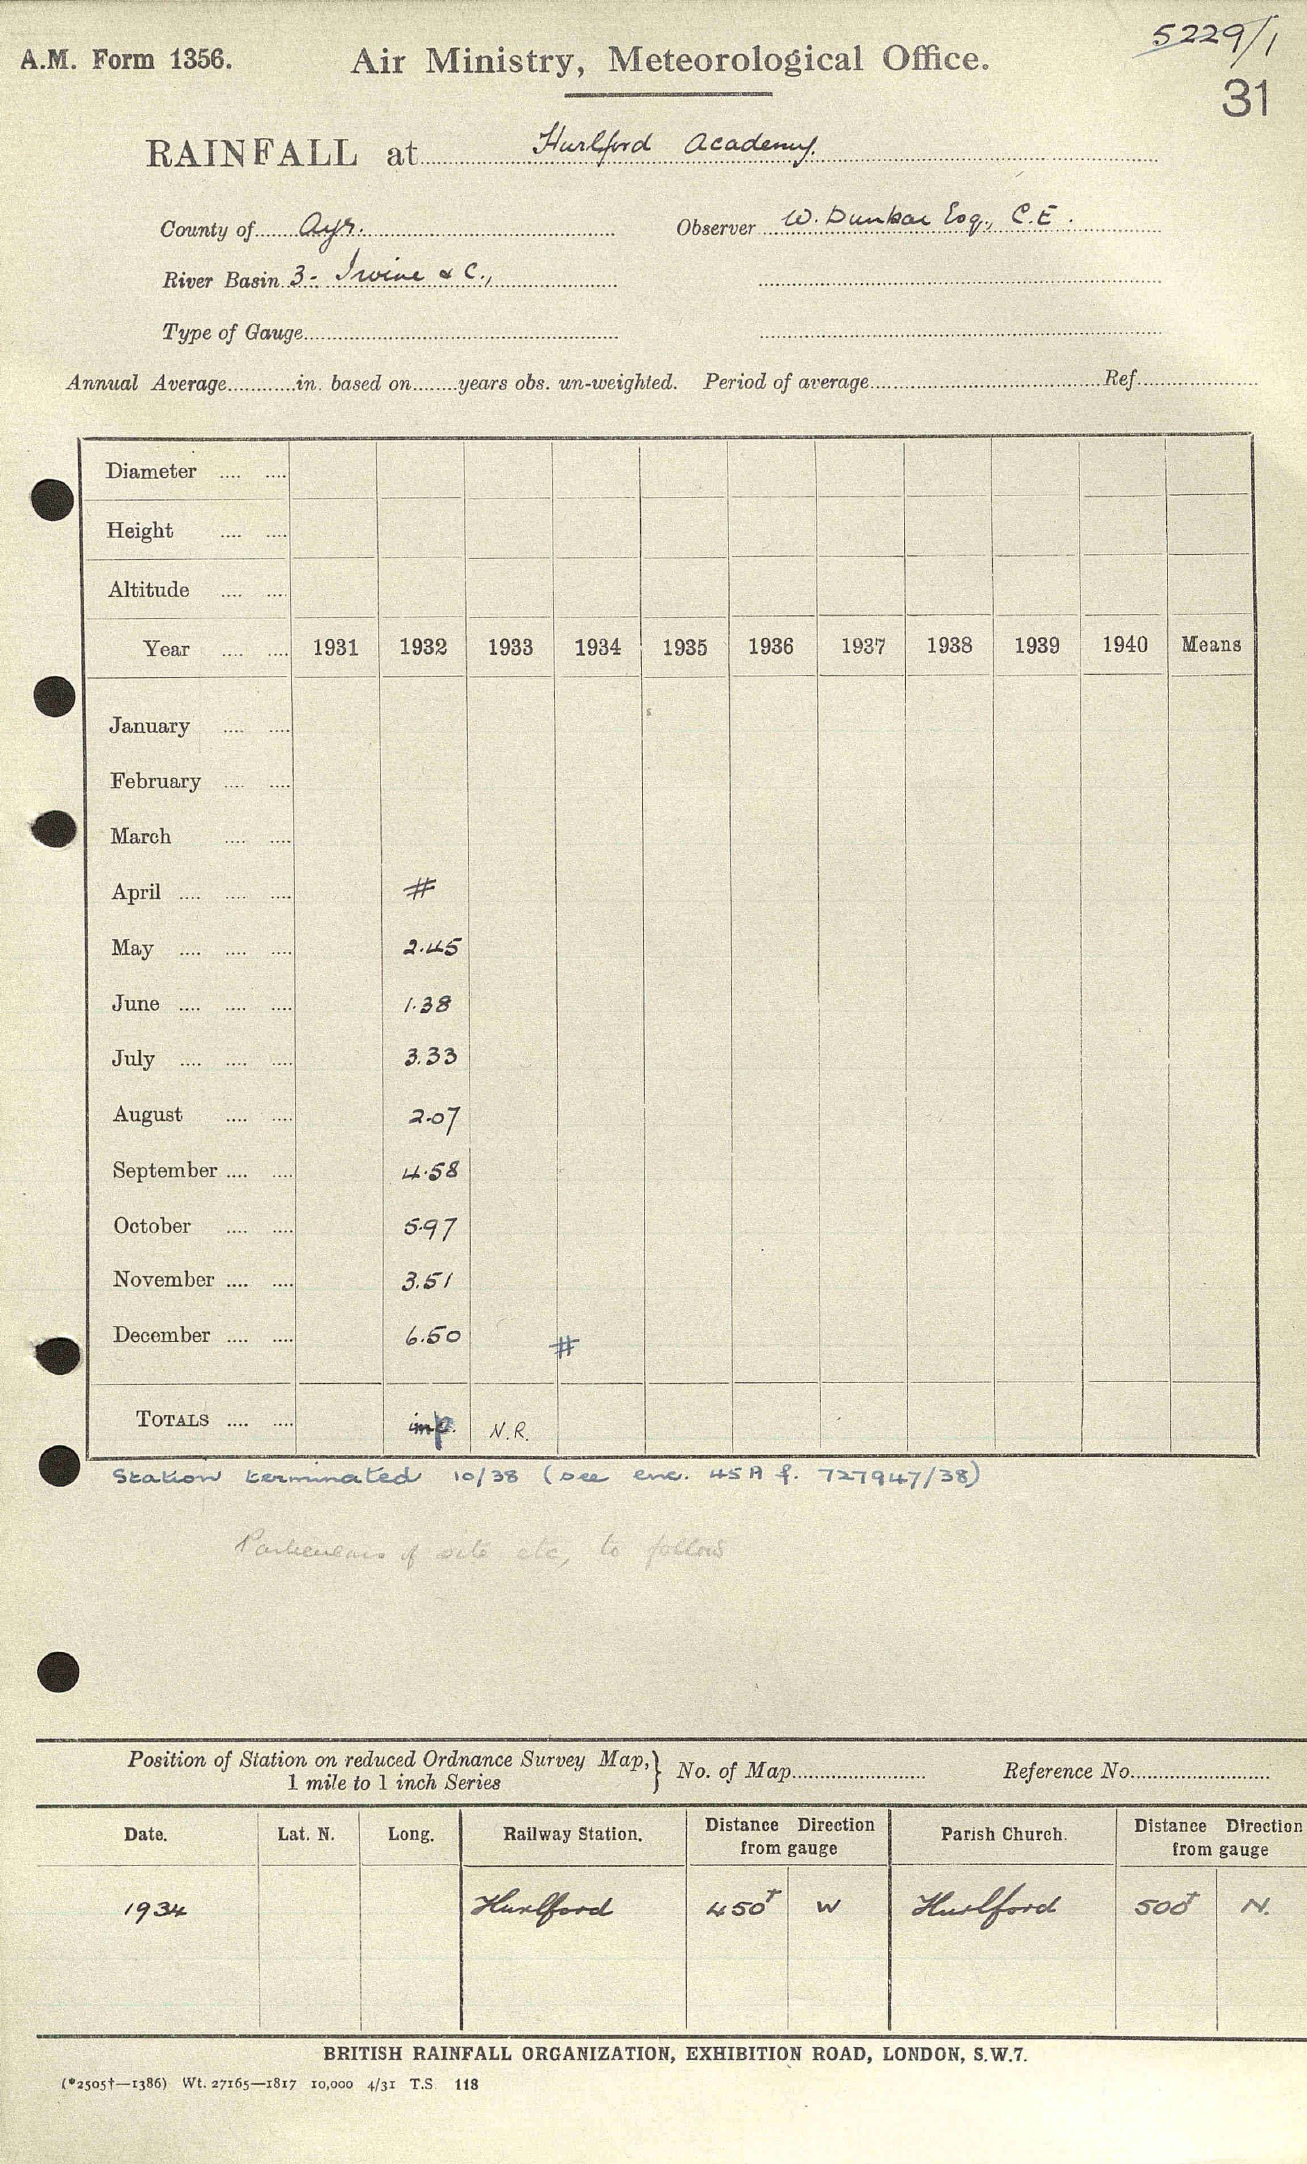 5229/1
A.M. Form 1356. Air Ministry, Meteorological Office.
31
RAINFALL at Hurlford Academy.
County of Ayr. Observer W. Dunbar Esq., C.E.
River Basin 3 - Irvine & C.,
Type of Gauge
Annual Average in. based on years obs. un-weighted. Period of average Ref.
Diameter
Height
Altitude
Year 1931 1932 1933 1934 1935 1936 1937 1938 1939 1940 Means
January
February
March
April #
May 2.45
June 1.38
July 3.33
August 2.07
September 4.58
October 5.97
November 3.51
December 6.50 #
TOTALS imp. N.R.
Station terminated 10/38 (see enc. 45A f. 727947/38)
Particulars of site etc, to follow
Position of Station on reduced Ordnance Survey Map, } No. of Map Reference No.
1 mile to 1 inch Series
Date. Lat. N. Long. Railway Station. Distance Direction from gauge Parish Church. Distance Direction from gauge
1934 Hurlford 450† W Hurlford 500† N.
BRITISH RAINFALL ORGANIZATION, EXHIBITION ROAD, LONDON, S.W.7.
(*2505†—1386) Wt. 27165—1817 10,000 4/31 T.S. 118